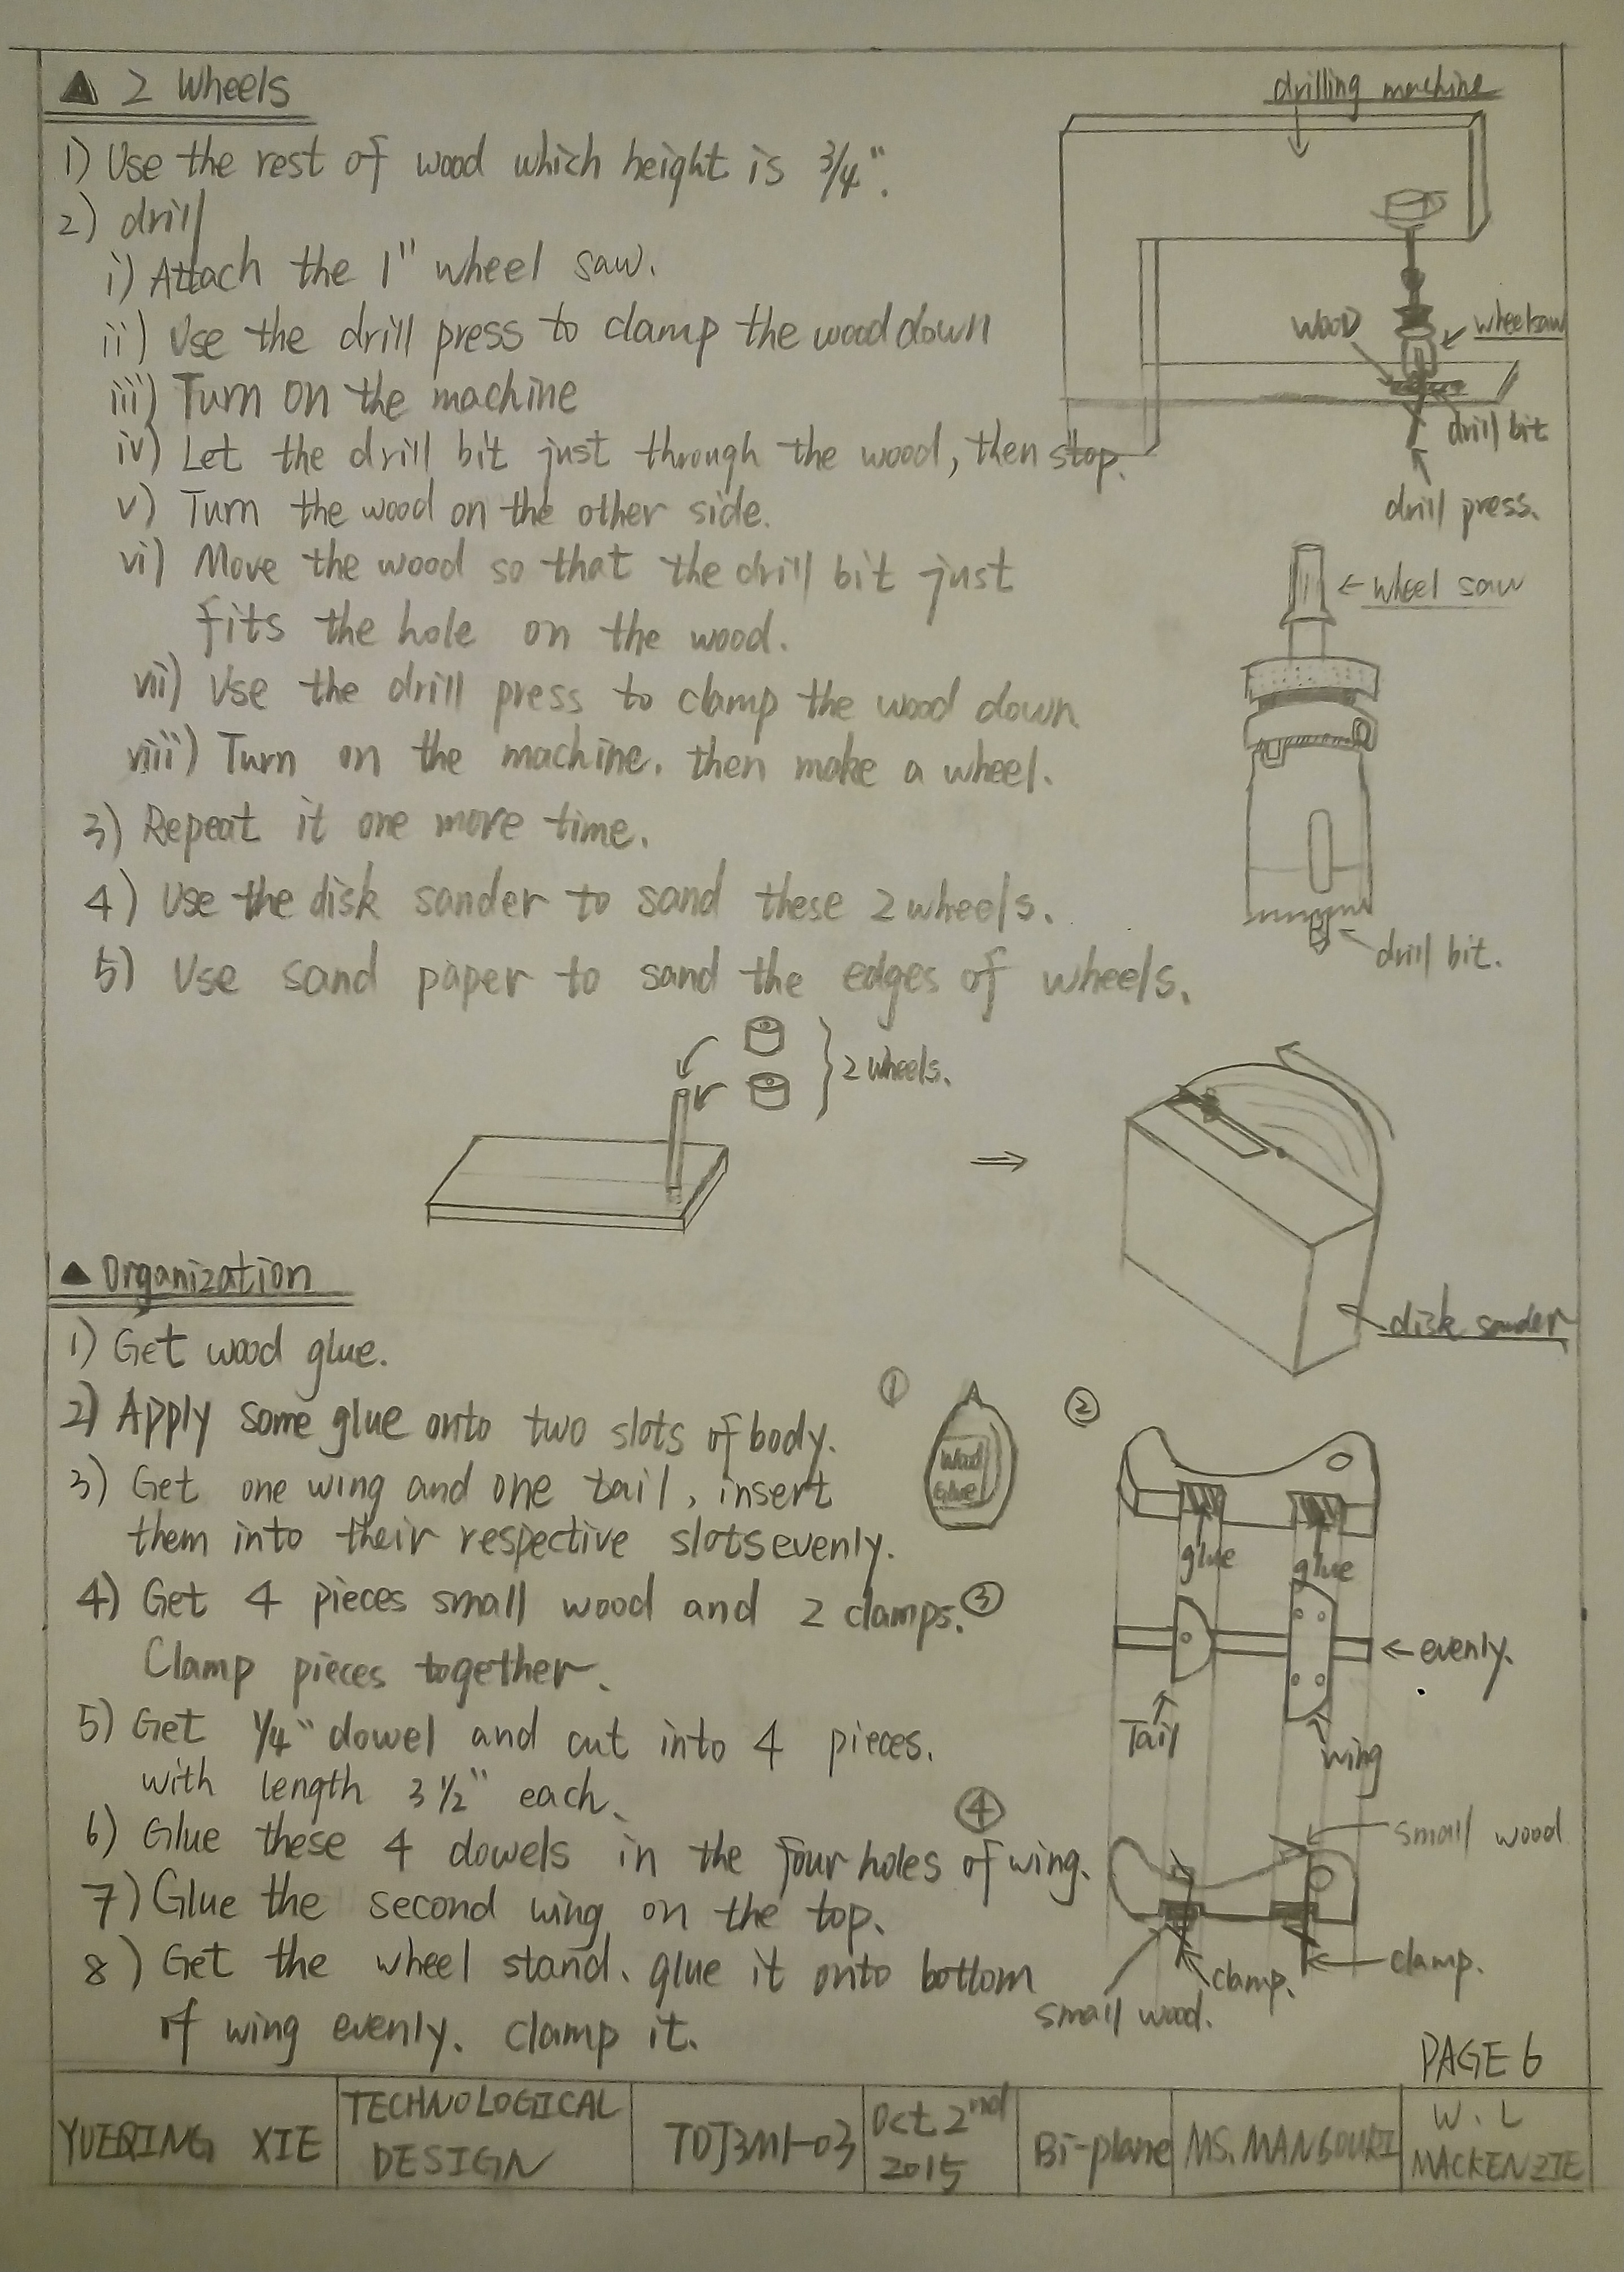 ▲ 2 Wheels
drilling machine
1) Use the rest of wood which height is 3/4".
2) drill
i) Attach the 1" wheel saw.
ii) Use the drill press to clamp the wood down
wood
wheelsaw
iii) Turn on the machine
drill bit
iv) Let the drill bit just through the wood, then stop.
v) Turn the wood on the other side.
drill press.
vi) Move the wood so that the drill bit just
fits the hole on the wood.
wheel saw
vii) Use the drill press to clamp the wood down.
viii) Turn on the machine, then make a wheel.
3) Repeat it one more time.
4) Use the disk sander to sand these 2 wheels.
drill bit.
5) Use sand paper to sand the edges of wheels.
2 wheels.
disk sander
▲ Organization
1) Get wood glue.
2) Apply some glue onto two slots of body.
3) Get one wing and one tail, insert
them into their respective slots evenly.
4) Get 4 pieces small wood and 2 clamps.
Clamp pieces together.
5) Get 1/4" dowel and cut into 4 pieces.
with length 3 1/2" each.
6) Glue these 4 dowels in the four holes of wing.
7) Glue the second wing on the top.
8) Get the wheel stand, glue it onto bottom
of wing evenly. clamp it.
①
Wood
Glue
②
glue
glue
③
evenly.
Tail
wing
④
small wood
clamp.
clamp.
small wood.
PAGE 6
YUEQING XIE
TECHNOLOGICAL
DESIGN
TDJ3M1-03
Oct. 2nd
2015
Bi-plane
MS. MANGOURI
W. L
MACKENZIE